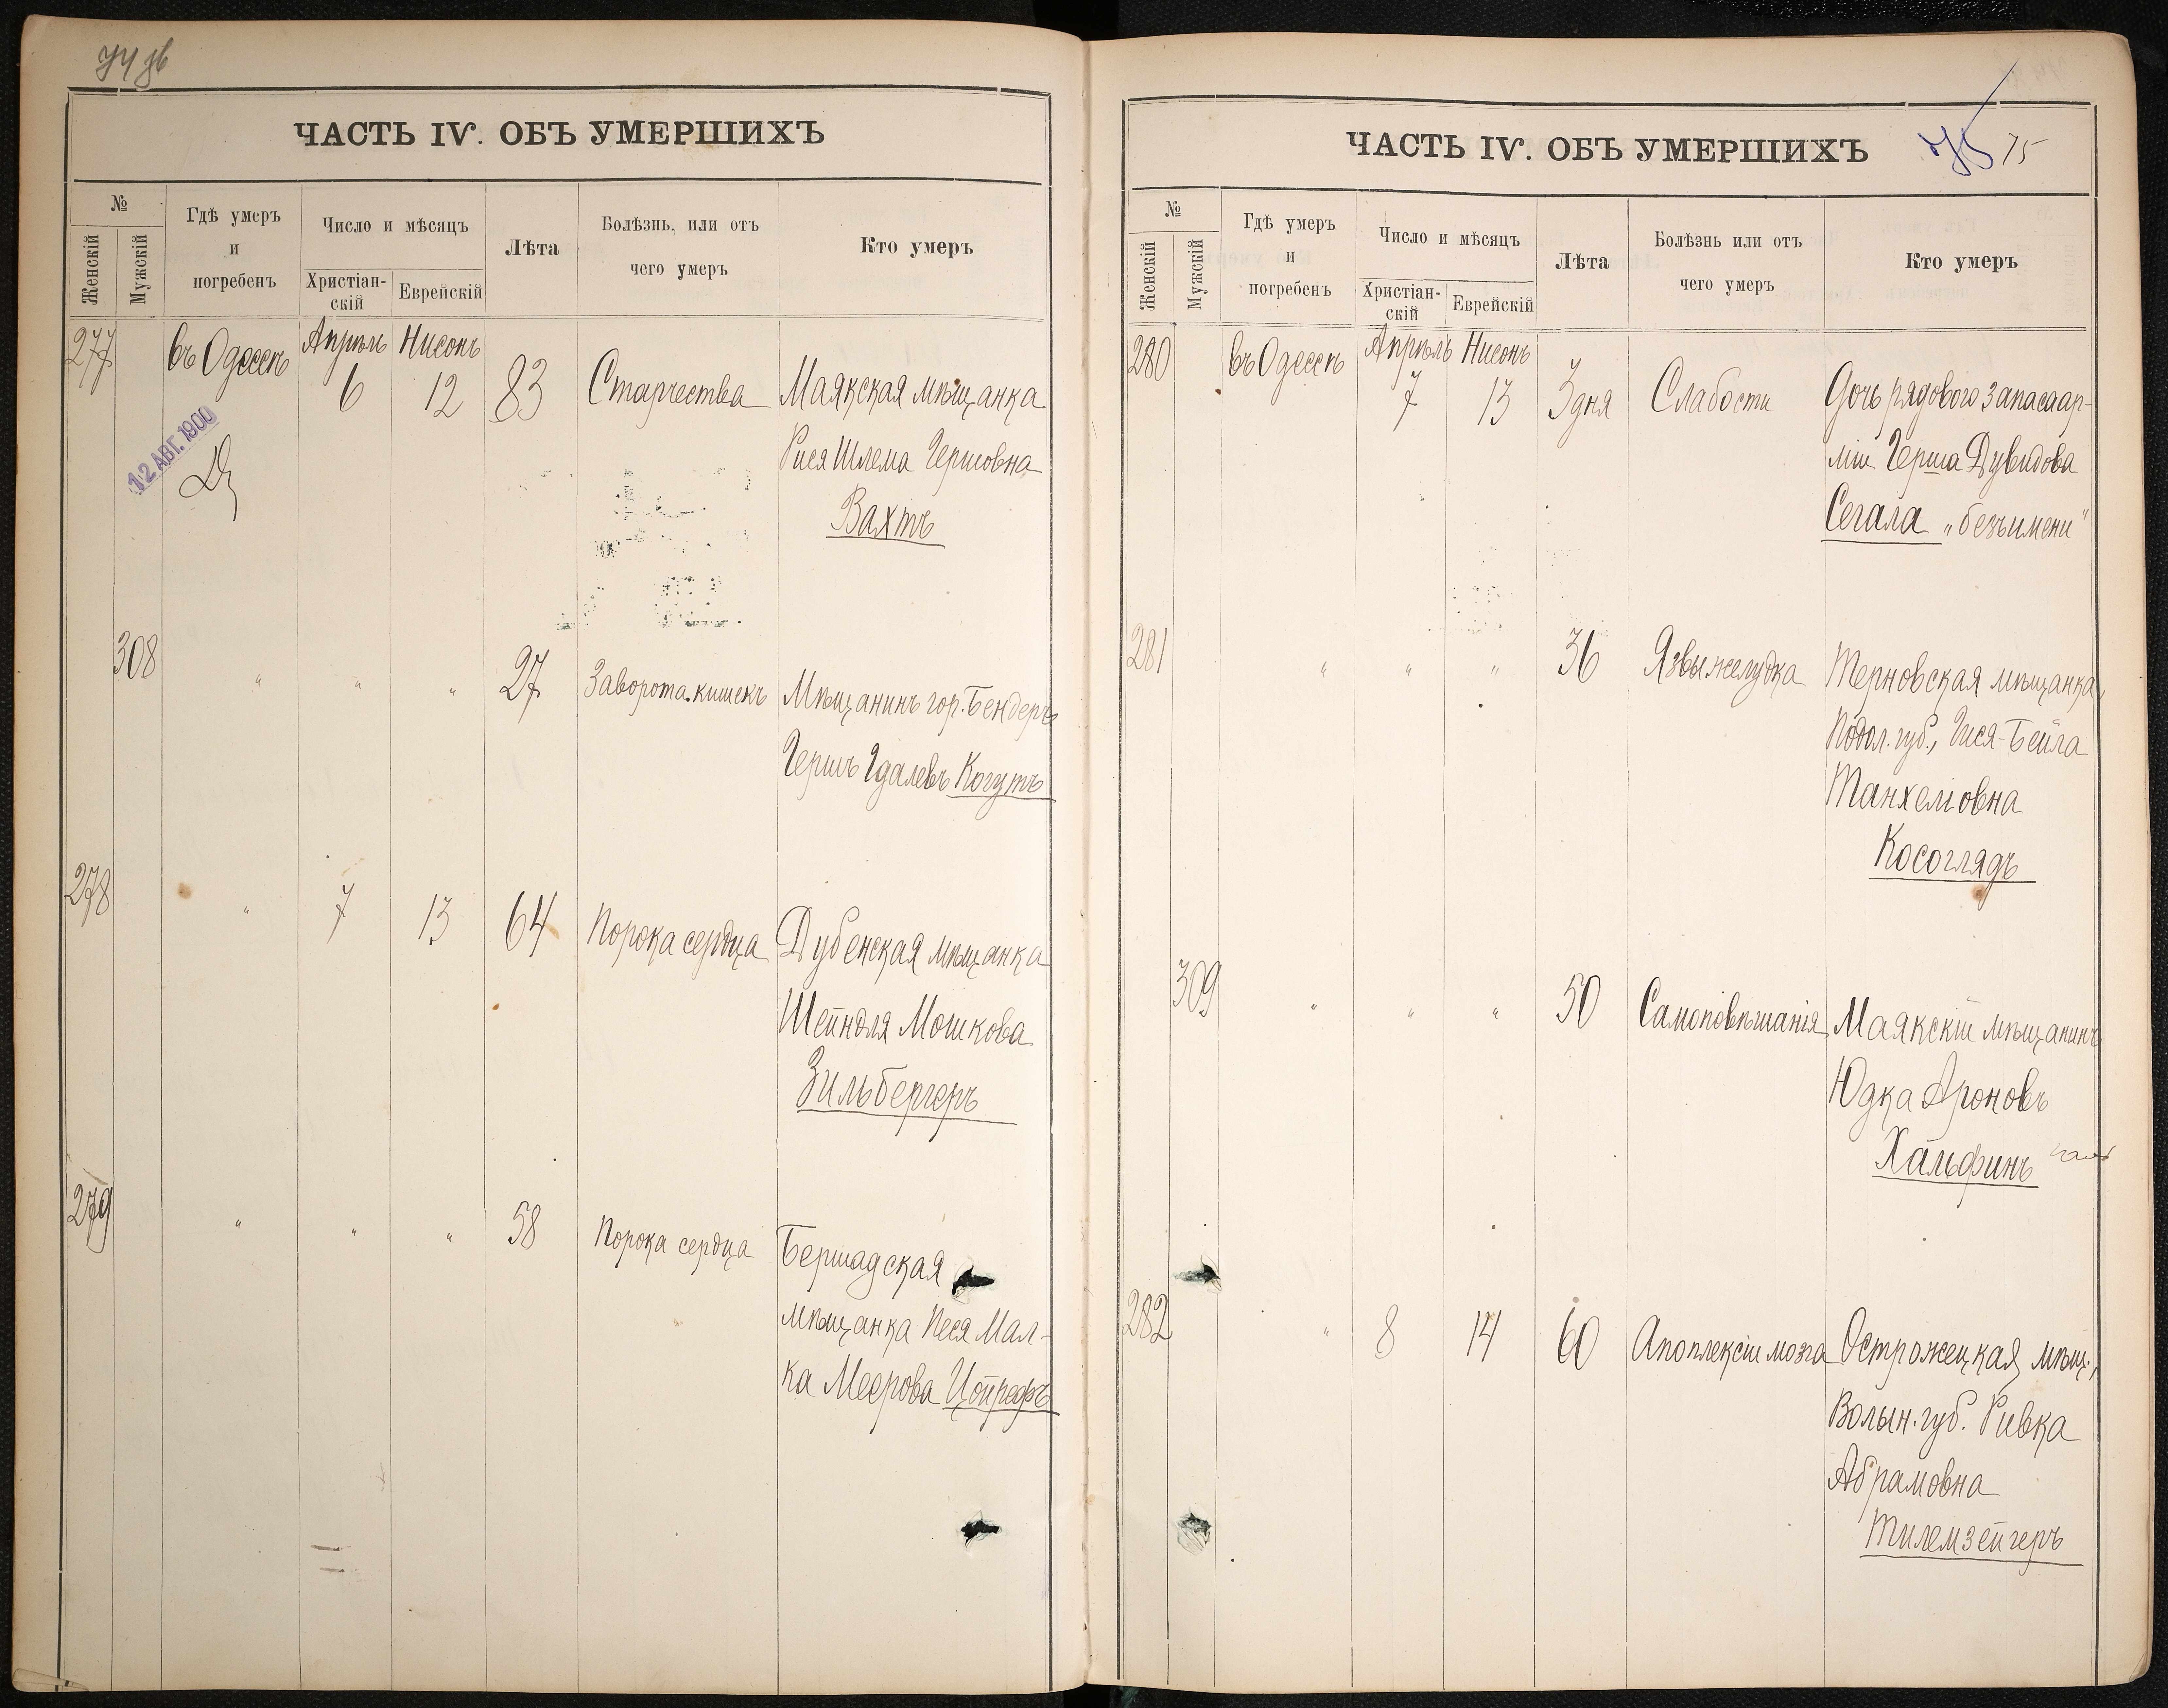 ЧАСТЬ IV. ОБЪ УМЕРШИХЪ
№
Женскій
Мужскій
Гдѣ умеръ
и
погребенъ
Число и мѣсяцъ
Христіан-
скій
Еврейскій
Лѣта
Болѣзнь, или отъ
чего умеръ
Кто умеръ
277 въ Одессѣ Апрѣль Нисонъ
6 12 83 Старчества Маякская мѣщанка
Рися Шлема Гершовна
Вахтъ
12 АВГ. 1900
308 " " " 27 Заворота кишекъ Мѣщанинъ гор. Бендеръ
Гершъ Гдалевъ Когутъ
278 " 7 13 64 Порока сердца Дубенская мѣщанка
Шейндля Мошкова
Зильбергеръ
279 " " " 58 Порока сердца Бершадская
мѣщанка Песя Мал-
ка Меерова
ЧАСТЬ IV. ОБЪ УМЕРШИХЪ 75 75
№
Женскій
Мужскій
Гдѣ умеръ
и
погребенъ
Число и мѣсяцъ
Христіан-
скій
Еврейскій
Лѣта
Болѣзнь или отъ
чего умеръ
Кто умеръ
280 въ Одессѣ Апрѣль Нисонъ
7 13 3 дня Слабости Дочь рядового запаса ар-
міи Герша Дувидова
Сегала „безъ имени"
281 " " " 36 Язвы желудка Терновская мѣщанка,
Подол. губ., Гися-Бейла
Танхеліовна
Косоглядъ
309 " " " 50 Самоповѣшанія Маякскій мѣщанинъ
Юдка Ароновъ
Хальфинъ
282 " 8 14 60 Апоплексіи мозга Острожецкая мѣщ.,
Волын. губ. Ривка
Абрамовна
Тилемзейгеръ